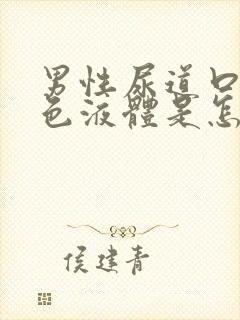 男性尿道口
色液體是怎
侯建青